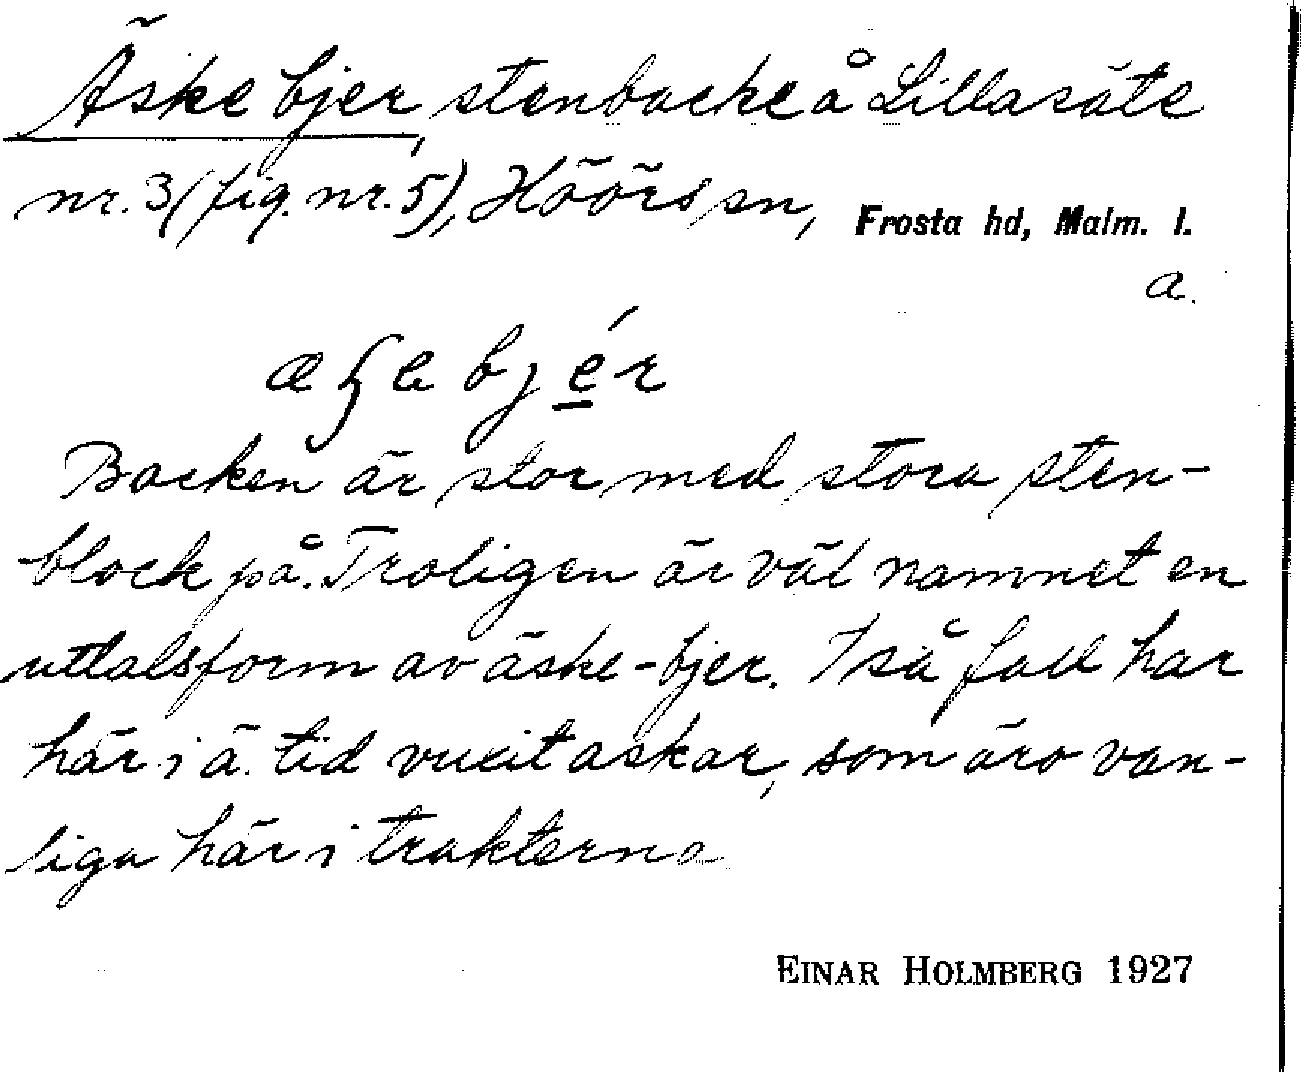 Äske bjer, stenbacke å Lillasäte
nr. 3 (fig. nr. 5), Höörs sn, Frosta hd, Malm. l.
a.
bjér
Backen är stor med stora sten-
block på. Troligen är väl namnet en
uttalsform av äske-bjer. I så fall har
här i ä. tid vuxit askar, som äro van-
liga här i trakterna
EINAR HOLMBERG 1927